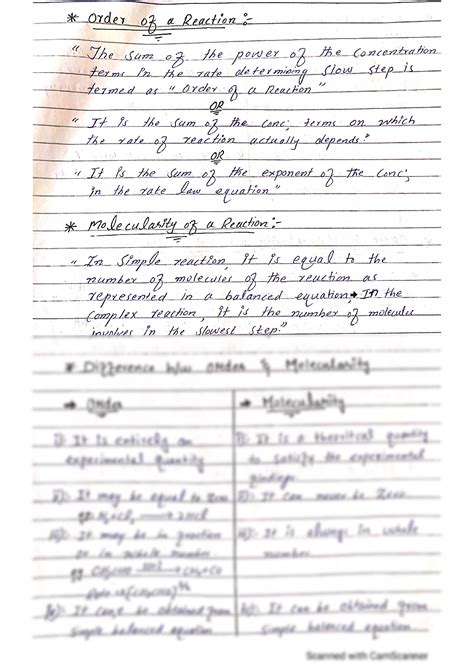 * Order of a Reaction:-
"The sum of the power of the concentration
terms in the rate determining slow step is
termed as "Order of a Reaction"
OR
"It is the sum of the conc; terms on which
the rate of reaction actually depends."
OR
"It is the sum of the exponent of the conc;
in the rate law equation"
* Molecularity of a Reaction:-
"In Simple reaction, it is equal to the
number of molecules of the reaction as
represented in a balanced equation→ In the
complex reaction, it is the number of molecules
involves in the slowest step."
* Difference b/w order & Molecularity
→ Order
i): It is entirely an
experimental quantity
ii): It may be equal to zero
eg: H₂+Cl₂ → 2HCl
iii): It may be in fraction
or in whole number.
eg CH₃CHO → CH₄+CO
iv): It can,t be obtained from
simple balanced equation
→ Molecularity
i): It is a theoritical quantity
to satisfy the experimental
findings.
ii): It can never be Zero
iii): It is always in whole
number.
iv): It can be obtained from
simple balanced equation.
Scanned with CamScanner